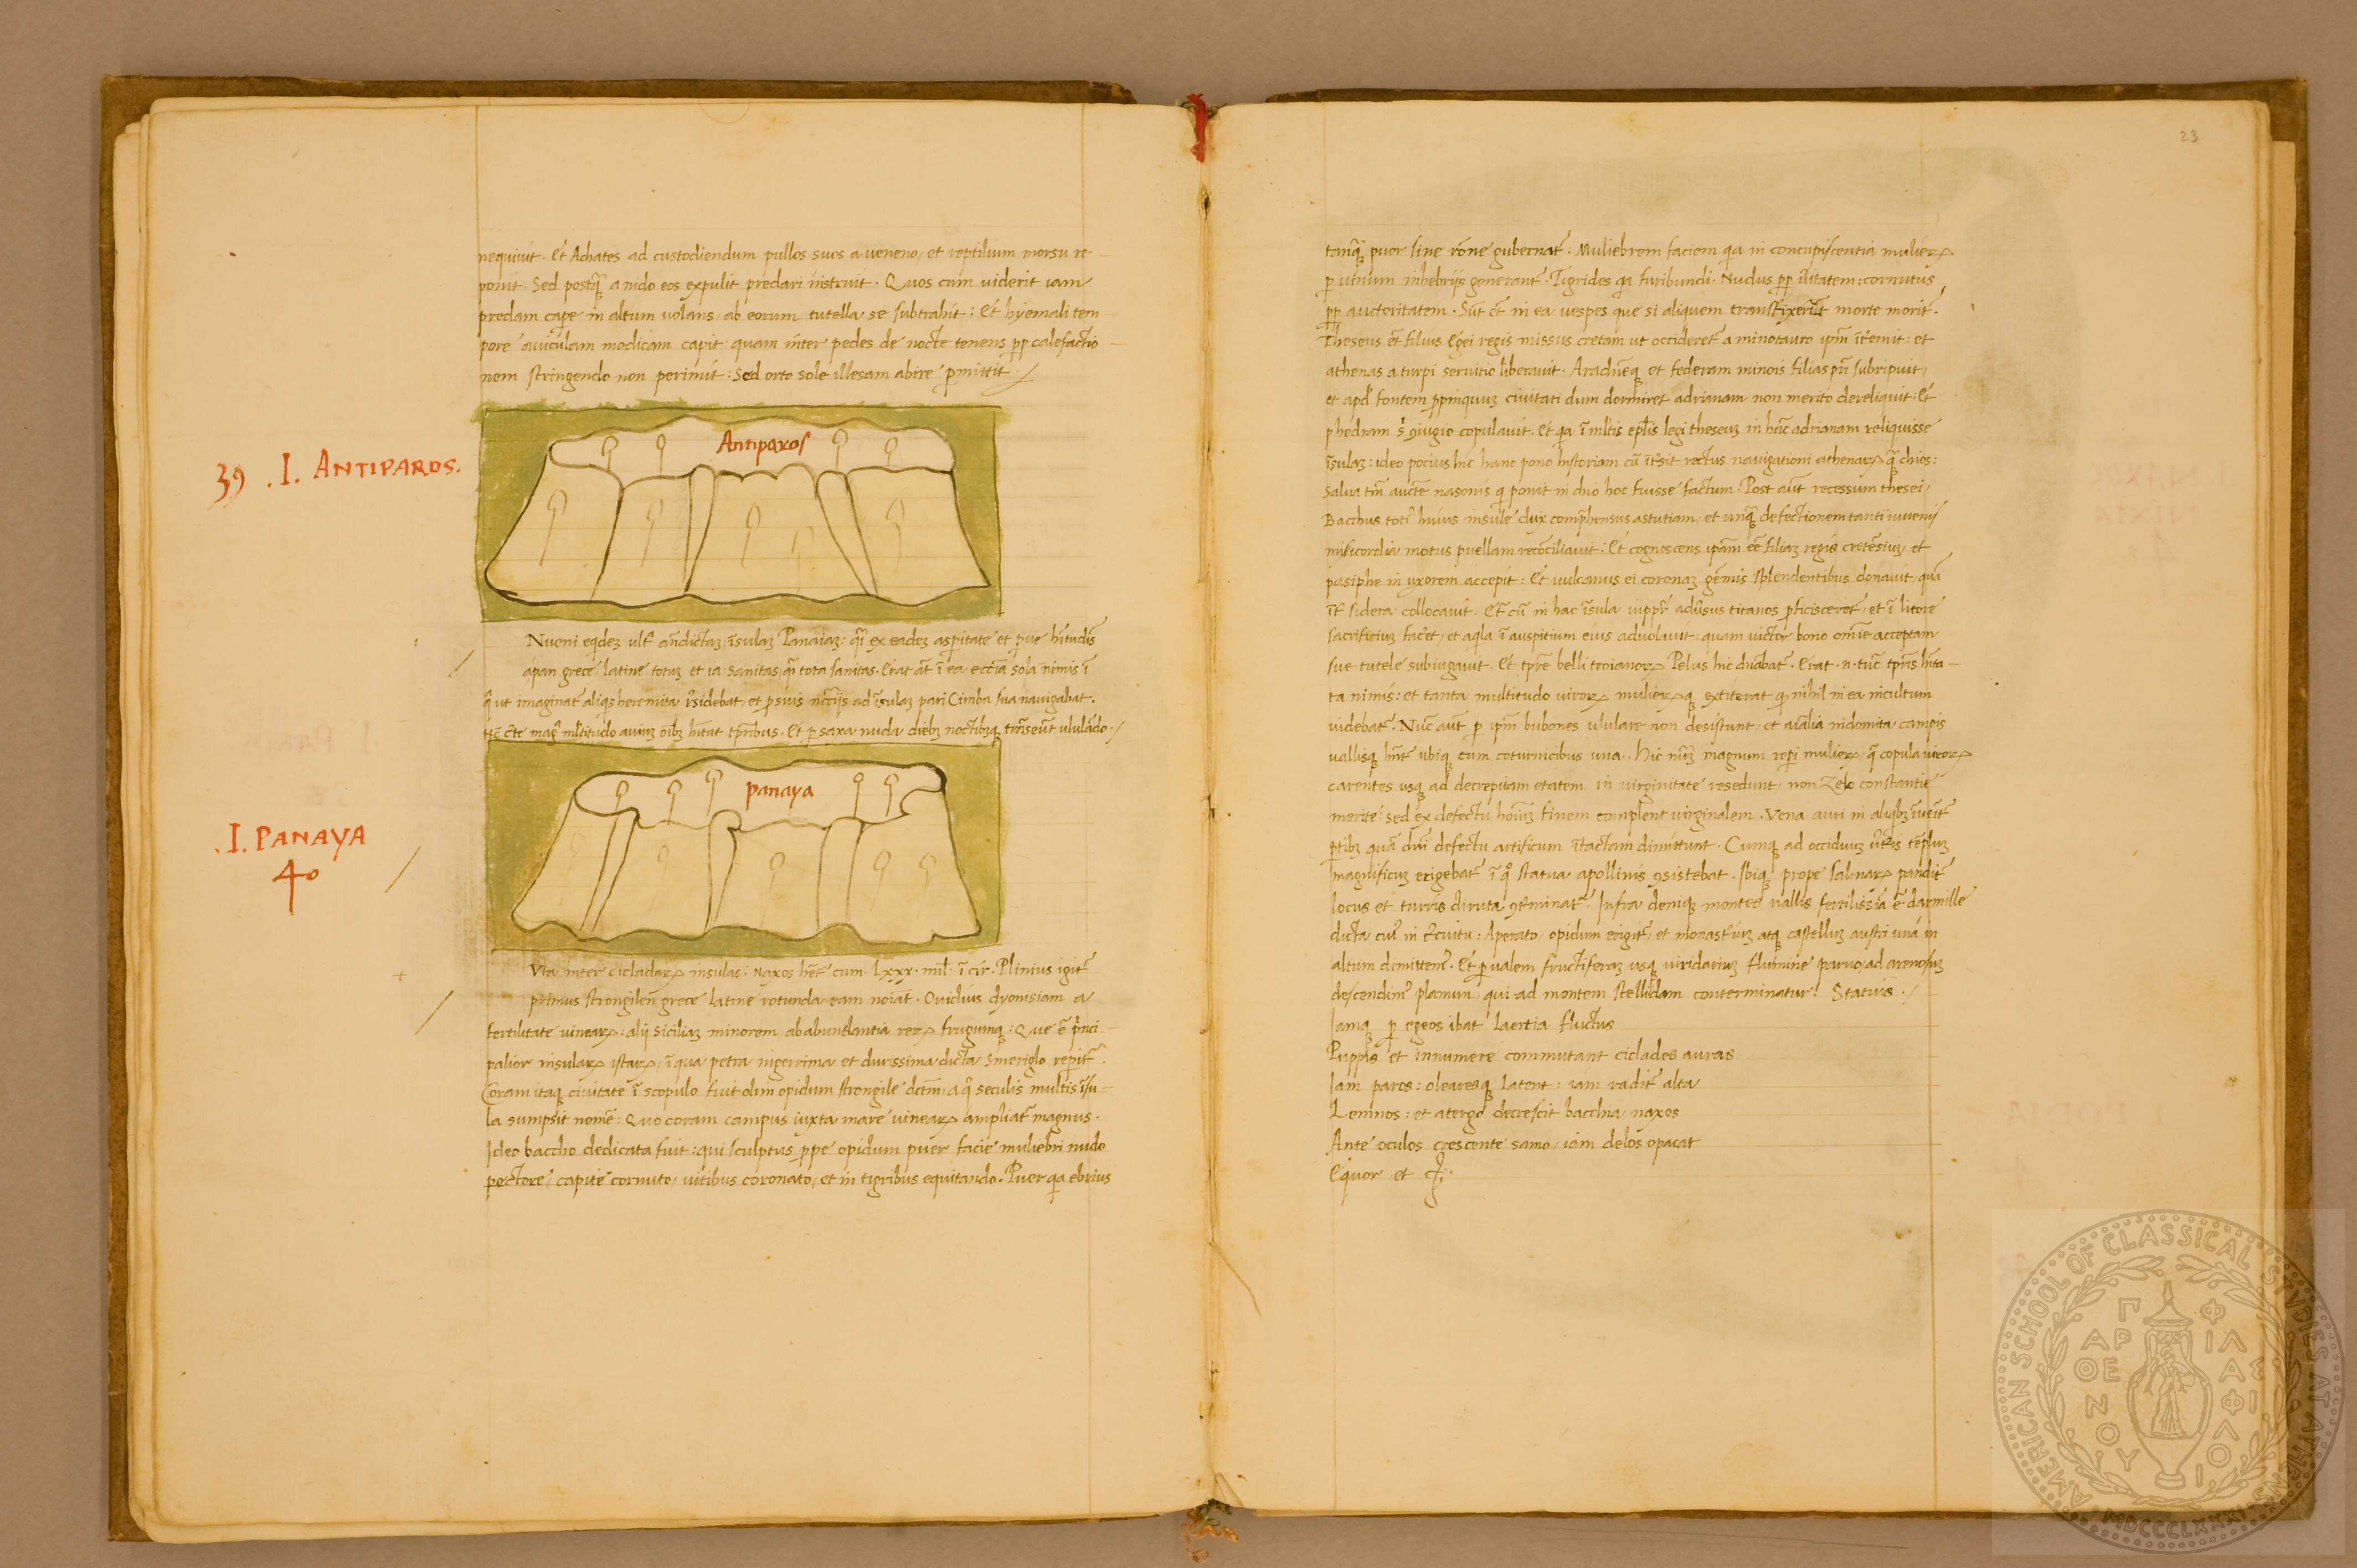 nequiuit. Et Achates ad custodiendum pullos suos a ueneno, et reptilium morsu re-
ponit. Sed postq̃ a nido eos expulit predari instruit. Quos cum uiderit iam
predam cape in altum uolans, ab eorum tutella se subtrahit: Et hyemali tem-
pore auiculam modicam capit quam inter pedes de nocte tenens pp calefactio-
nem stringendo non perimit: Sed orto sole illesam abire pmittit./
39 .I. ANTIPAROS.
Antiparos
Nueni eqdez ult andictaz, insulaz Panaiaz: q ex eadez aspitate et
apan grece latine totaz et ia sanitas, q tota sanitas. Erat at ĩ ea ecctia sola nimis ĩ
q ut imaginat aliqs heremita rsidebat, et p suis ncctijs ad ĩsulaz pari Cimba sua nauigabat.
mltitudo auiuz oibz hitat tpribus. Et p saxa nuda diebz noctibzq trãseut ululãdo./
.I. PANAYA
40
panaya
Vta inter cicladaꝝ insulas: Naxos het cum. Lxxx. mil. ĩ cir. Plinius igit
primus strongilen grece latine rotunda eam noiat. Ouidius dyonisiam a
fertilitate uineaꝝ: alij siciliaz minorem ab abundantia reꝝ frugumq: Que ẽ pnci-
palior insulaꝝ istaꝝ, ĩ qua petra nigerrima et durissima dicta Smeriglo repit.
Coram itaq ciuitate ĩ scopulo fuit olim opidum strongile dctm, a q seculis multis ĩsu-
la sumpsit nome: Quo coram campus iuxta mare uineaꝝ ampliat magnus.
Ideo baccho dedicata fuit: qui sculptus ppe opidum puer facie muliebri nudo
pectore, capite cornuto, uitibus coronato, et in tigribus equitando. Puer qa ebrius
23
tanq̃ puer sine rõne gubernat. Muliebrem faciem qa in concupiscentia mulieꝝ
p uinum inhebrijs generant. Tigrides qa furibundi. Nudus pp ilitatem: cornutus
pp auctoritatem. Sũt et in ea uespes que si aliquem transfixerit morte morit.
Theseus et filius Egei regis missus cretam ut occideret a minotauro ipm ĩtemit: et
athenas a turpi seruitio liberauit. Aradneq et federam minois filias pri subripuit,
et apd fontem ppinquuz ciuitati dum dormiret adrianam non merito dereliquit. Et
phedram s 9iugio copulauit. Et qa ĩ mltis eplis legi theseuz in hac adrianam reliquisse
ĩsulaz: ideo pocius hic hanc pono historiam cũ ĩtsit rectus nauigationi athenaꝝ q chios:
salua tm aucte nasonis q ponit in chio hoc fuisse factum. Post aut recessum thesei,
Bacchus toti huius insule dux comprehensus astutiam, et unq̃ defectionem tanti iuuenis
misicordia motus puellam reconciliauit: Et cognoscens ipam ee filiaz regis cretesiuz, et
pasiphe in uxorem accepit: Et uulcanus ei coronaz gemis splendentibus donauit, qua
ĩt sidera collocauit. Et cũ in hac ĩsula iuppr aduersus titanos pficisceret, et ĩ litore
sacrificiuz facet, et aqla ĩ auspitium eius aduolauit: quam uictor bono omie acceptam
sue tutele subiugauit. Et tpre belli troianoꝝ Pelus hic dñabat. Erat. n. tuc tpris hita-
ta nimis: et tanta multitudo uiroꝝ mulieꝝq extiterat q nihil in ea incultum
uidebat. Nuc aut p ipm bubones ululare non desistunt, et aialia indomita campis
uallisq hnt ubiq cum coturnicibus una. Hic nuz magnum repi mulieꝝ, q copula uiroꝝ
carentes usq ad decrepitam etatem in uirginitate resedunt, non zelo constantie
merite: sed ex defectu hoiuz finem complent uirginalem. Vena auri in aliqbz ĩueit
ptibz qua dni defectu artificum ĩtactam dimittunt. Cumq ad occiduuz urbis tepluz
magnificuz erigebat ĩ q statua apollinis 9sistebat. Ibiq prope salinaꝝ pandit
locus et turris diruta 9tminat. Infra deniq montes uallis fertilissia ẽ darmille
dicta cui in circuitu: Aperato, opidum erigit, et monastiuz atq castelluz austri una in
altum dimittem. Et p ualem fructiferaz usq uiridariuz flumine paruo, ad arenosuz
descendim planum, qui ad montem stellidam conterminatur. Statius./
Iamq p egeos ibat laertia fluctus
Puppis et innumere commutant ciclades auras
Iam paros: olearesq latent: iam radit alta
Lemnos: et atergo decrescit bacchna naxos
Ante oculos crescente samo, iam delos opacat
Equor et c̃.
AMERICAN SCHOOL OF CLASSICAL STUDIES AT ATHENS
MDCCCLXXXI
ΠΑΡΘΕΝΟΥ ΦΙΛΑΣ ΦΙΛΟΙ